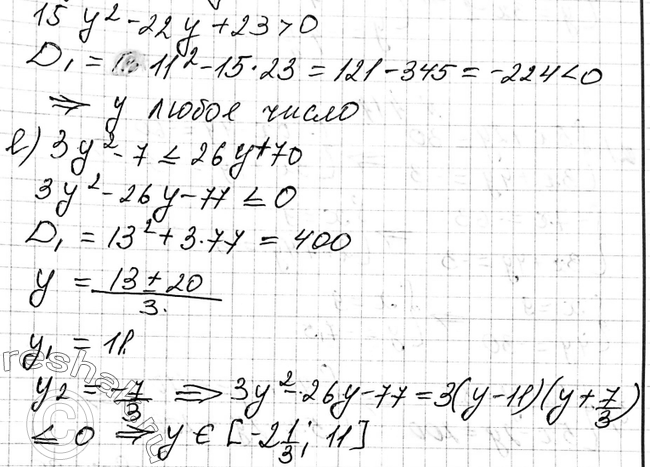 15y² - 22y + 23 > 0
D₁ = 11² - 15·23 = 121 - 345 = -224 < 0
⇒ y любое число
в) 3y² - 7 ≤ 26y + 70
3y² - 26y - 77 ≤ 0
D₁ = 13² + 3·77 = 400
y = (13 ± 20)/3
y₁ = 11
y₂ = -7/3 ⇒ 3y² - 26y - 77 = 3(y - 11)(y + 7/3)
≤ 0 ⇒ y ∈ [-2 1/3; 11]